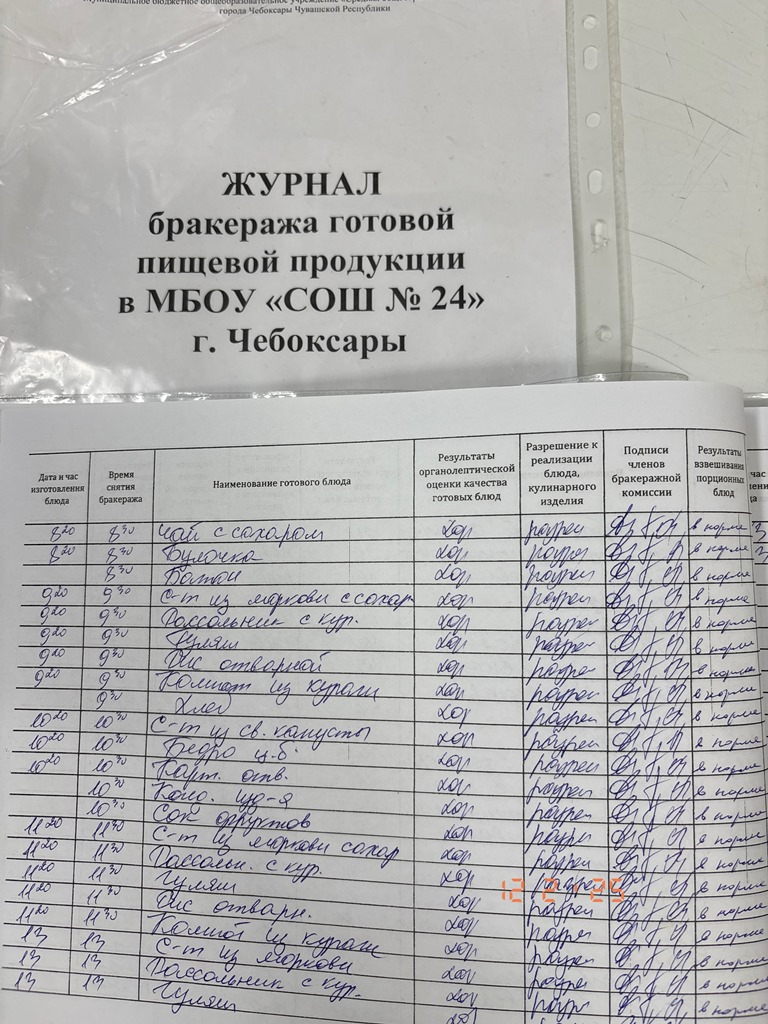 города Чебоксары Чувашской Республики
ЖУРНАЛ
бракеража готовой
пищевой продукции
в МБОУ «СОШ № 24»
г. Чебоксары
Дата и час изготовления блюда
Время снятия бракеража
Наименование готового блюда
Результаты органолептической оценки качества готовых блюд
Разрешение к реализации блюда, кулинарного изделия
Подписи членов бракеражной комиссии
Результаты взвешивания порционных блюд
8 20 8 30 Чай с сахаром хор разреш в норме
8 20 8 30 Булочка хор разреш в норме
8 30 Батон хор разреш в норме
9 20 9 30 С-т из моркови с сахар хор разреш в норме
9 20 9 30 Рассольник с кур. хор разреш в норме
9 20 9 30 Гуляш хор разреш в норме
9 20 9 30 Рис отварной хор разреш в норме
9 20 9 30 Компот из кураги хор разреш в норме
9 30 Хлеб хор разреш в норме
10 20 10 30 С-т из св. капусты хор разреш в норме
10 20 10 30 Бедро ц.б. хор разреш в норме
10 20 10 30 Карт. отв. хор разреш в норме
10 30 Конд. изд-я хор разреш в норме
10 30 Сок фруктов хор разреш в норме
11 20 11 30 С-т из моркови сахар хор разреш в норме
11 20 11 30 Рассольн. с кур. хор разреш в норме
11 20 11 30 Гуляш хор разреш в норме
11 20 11 30 Рис отварн. хор разреш в норме
11 20 11 30 Компот из кураги хор разреш в норме
13 13 С-т из моркови хор разреш в норме
13 13 Рассольник с кур. хор разреш в норме
13 13 Гуляш хор разреш в норме
12 2 '25